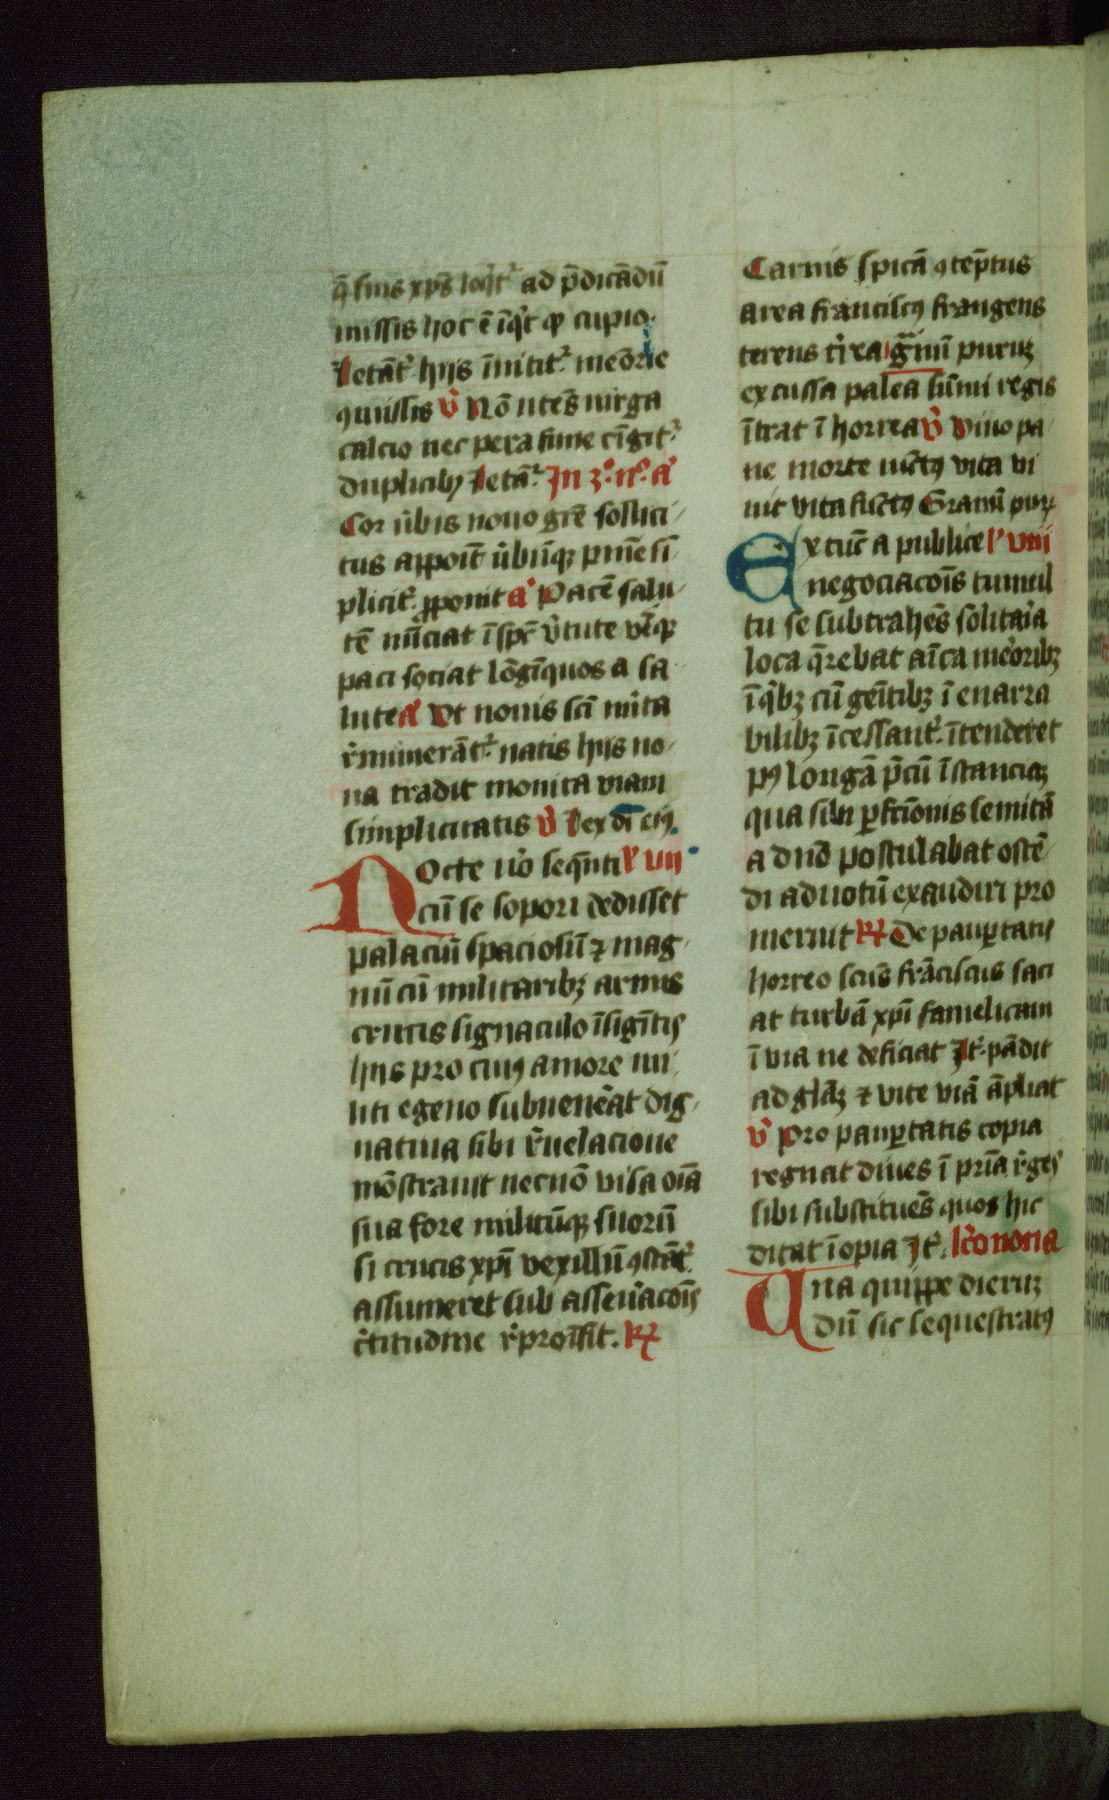 q̄ suis xp̄s loqt᷑ ad p̄dicādū
missis hoc ē īq̇t qd cupio
letāt᷑ hijs īnitit᷑ meōrie
ꝯmissis v̇ Nō utēs virga
calcio nec pera fune cīgit᷑
duplicibꝫ letāt᷑ In 3º nº a᷑
Cor ūbis nouo grē sollici
tus appoīt ūbūqꝫ pnīe sī
plicit᷑ ꝓponit a᷑ Pacē salu
tē nūciat ī spc̄ v̇tute verqꝫ
paci sociat lōgīquos a sa
lute a᷑ Ut nouis scī mīta
ṙmunerāt᷑ natis hijs no
ua tradit monita viam
simplicitatis v̇ lex dī eiꝰ
Nocte ūo seqn̄ti l᷑ vii
cū se sopori dedisset
palaciū spaciosū ⁊ mag
nū cū militaribꝫ armis
crucis signaculo īsigītis
hijs pro cuiꝰ amore mi
liti egeno subuenēat dig
natiua sibi ṙuelacione
mōstrauit necnō visa oīa
sua fore militūqꝫ suorū
si crucis xpī vexillū ꝯstāt᷑
assumeret sub asseūacōis
c̄titudine ṙpromīsit. ꝶ
Carnis spicā ꝯtēptus
area franciscꝰ frangens
terens tīrea gnū puruꝫ
excussa palea sūmi regis
ītrat ī horrea v̇ Viuo pa
ne morte iūctꝰ vita vi
uit vita fūctꝰ Granū puꝝ
Ex tūc a publice l᷑ viii
negociacois tumul
tu se subtrahēs solitaīa
loca q̄rebat aīca meōribꝫ
īq̇bꝫ cū gem̄tibꝫ ī enarra
bilibꝫ īcessant᷑ ītenderet
pꝰ longā p̄cū īstanciaꝫ
qua sibi ꝑfcīonis semitā
a dnō postulabat ostē
di ad votū exaudiri pro
meruit ꝶ De paupertatis
horreo scūs frāciscus saci
at turbā xpī famelicam
ī via ne deficiat It᷑ pādit
ad glaꝫ ⁊ vite viā āpliat
v̇ Pro paupertatis copia
regnat diues ī prīa ṙges
sibi substituēs quos hic
ditat īopia It᷑. lc̄o nona
Una quippe dieruꝫ
dū sic sequestratꝰ